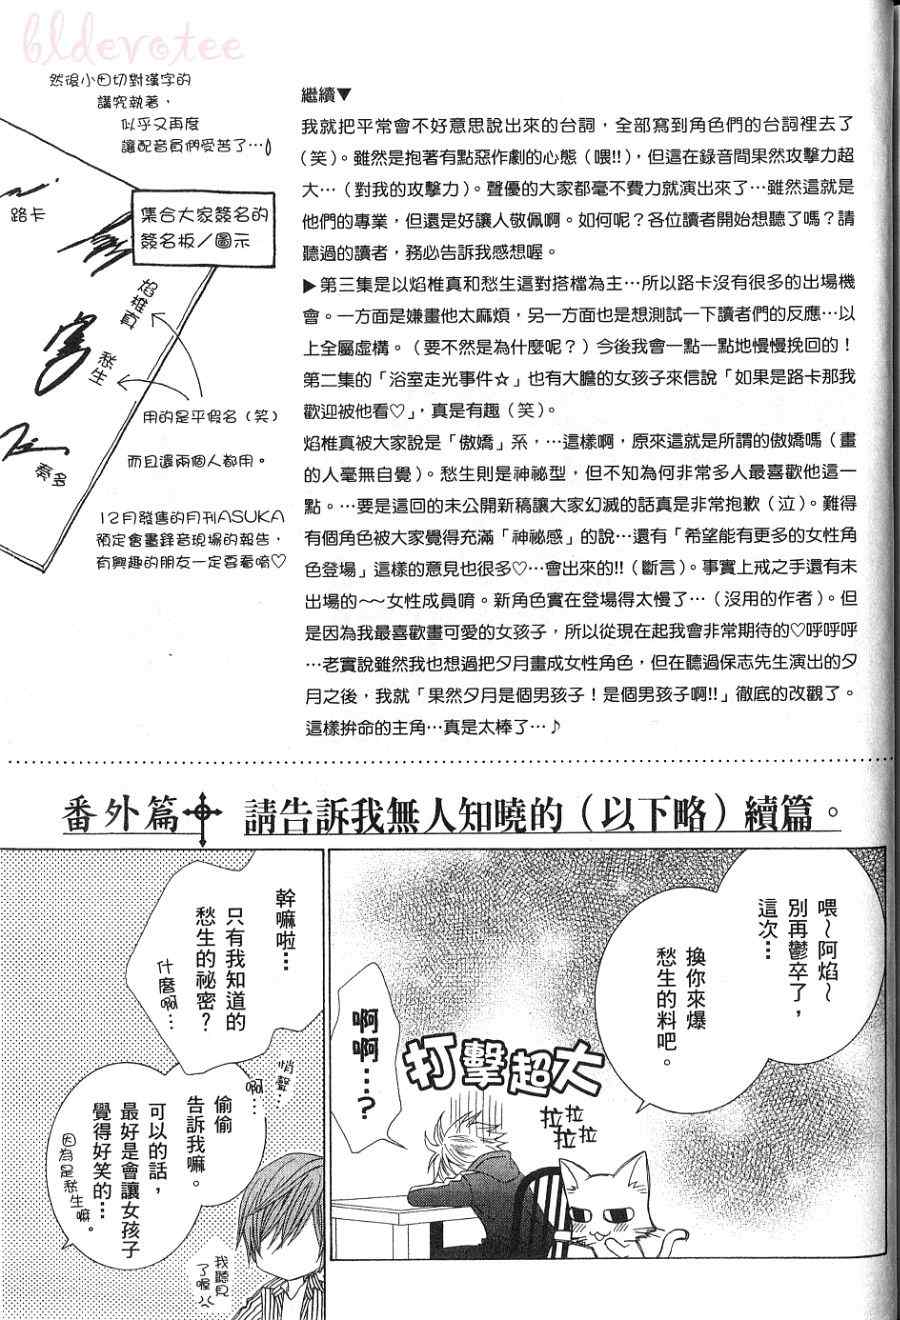 bldevotee
然後小田切對漢字的
講究執著，
似乎又再度
讓配音員們受苦了…
路卡
集合大家簽名的
簽名板／圖示
焰椎真
愁生
用的是平假名（笑）
而且還兩個人都用。
夢多
12月發售的月刊ASUKA
預定會畫錄音現場的報告，
有興趣的朋友一定要看唷♡
繼續▼
我就把平常會不好意思說出來的台詞，全部寫到角色們的台詞裡去了
（笑）。雖然是抱著有點惡作劇的心態（喂!!），但這在錄音間果然攻擊力超
大…（對我的攻擊力）。聲優的大家都毫不費力就演出來了…雖然這就是
他們的專業，但還是好讓人敬佩啊。如何呢？各位讀者開始想聽了嗎？請
聽過的讀者，務必告訴我感想喔。
▶第三集是以焰椎真和愁生這對搭檔為主…所以路卡沒有很多的出場機
會。一方面是嫌畫他太麻煩，另一方面也是想測試一下讀者們的反應…以
上全屬虛構。（要不然是為什麼呢？）今後我會一點一點地慢慢挽回的！
第二集的「浴室走光事件☆」也有大膽的女孩子來信說「如果是路卡那我
歡迎被他看♡」，真是有趣（笑）。
焰椎真被大家說是「傲嬌」系，…這樣啊，原來這就是所謂的傲嬌嗎（畫
的人毫無自覺）。愁生則是神祕型，但不知為何非常多人最喜歡他這一
點。…要是這回的未公開新稿讓大家幻滅的話真是非常抱歉（泣）。難得
有個角色被大家覺得充滿「神祕感」的說…還有「希望能有更多的女性角
色登場」這樣的意見也很多♡…會出來的!!（斷言）。事實上戒之手還有未
出場的～～女性成員唷。新角色實在登場得太慢了…（沒用的作者）。但
是因為我最喜歡畫可愛的女孩子，所以從現在起我會非常期待的♡呼呼呼
…老實說雖然我也想過把夕月畫成女性角色，但在聽過保志先生演出的夕
月之後，我就「果然夕月是個男孩子！是個男孩子啊!!」徹底的改觀了。
這樣拚命的主角…真是太棒了…♪
番外篇 請告訴我無人知曉的（以下略）續篇。
喂～阿焰～
別再鬱卒了，
這次…
換你來爆
愁生的料吧。
啊
啊…？
打擊超大
拉拉
拉拉
幹嘛啦…
只有我知道的
愁生的祕密？
什麼啊…
悄聲…
啊…
偷偷
告訴我嘛。
可以的話，
最好是會讓女孩子
覺得好笑的…
因為是愁生嘛。
我聽見
了喔